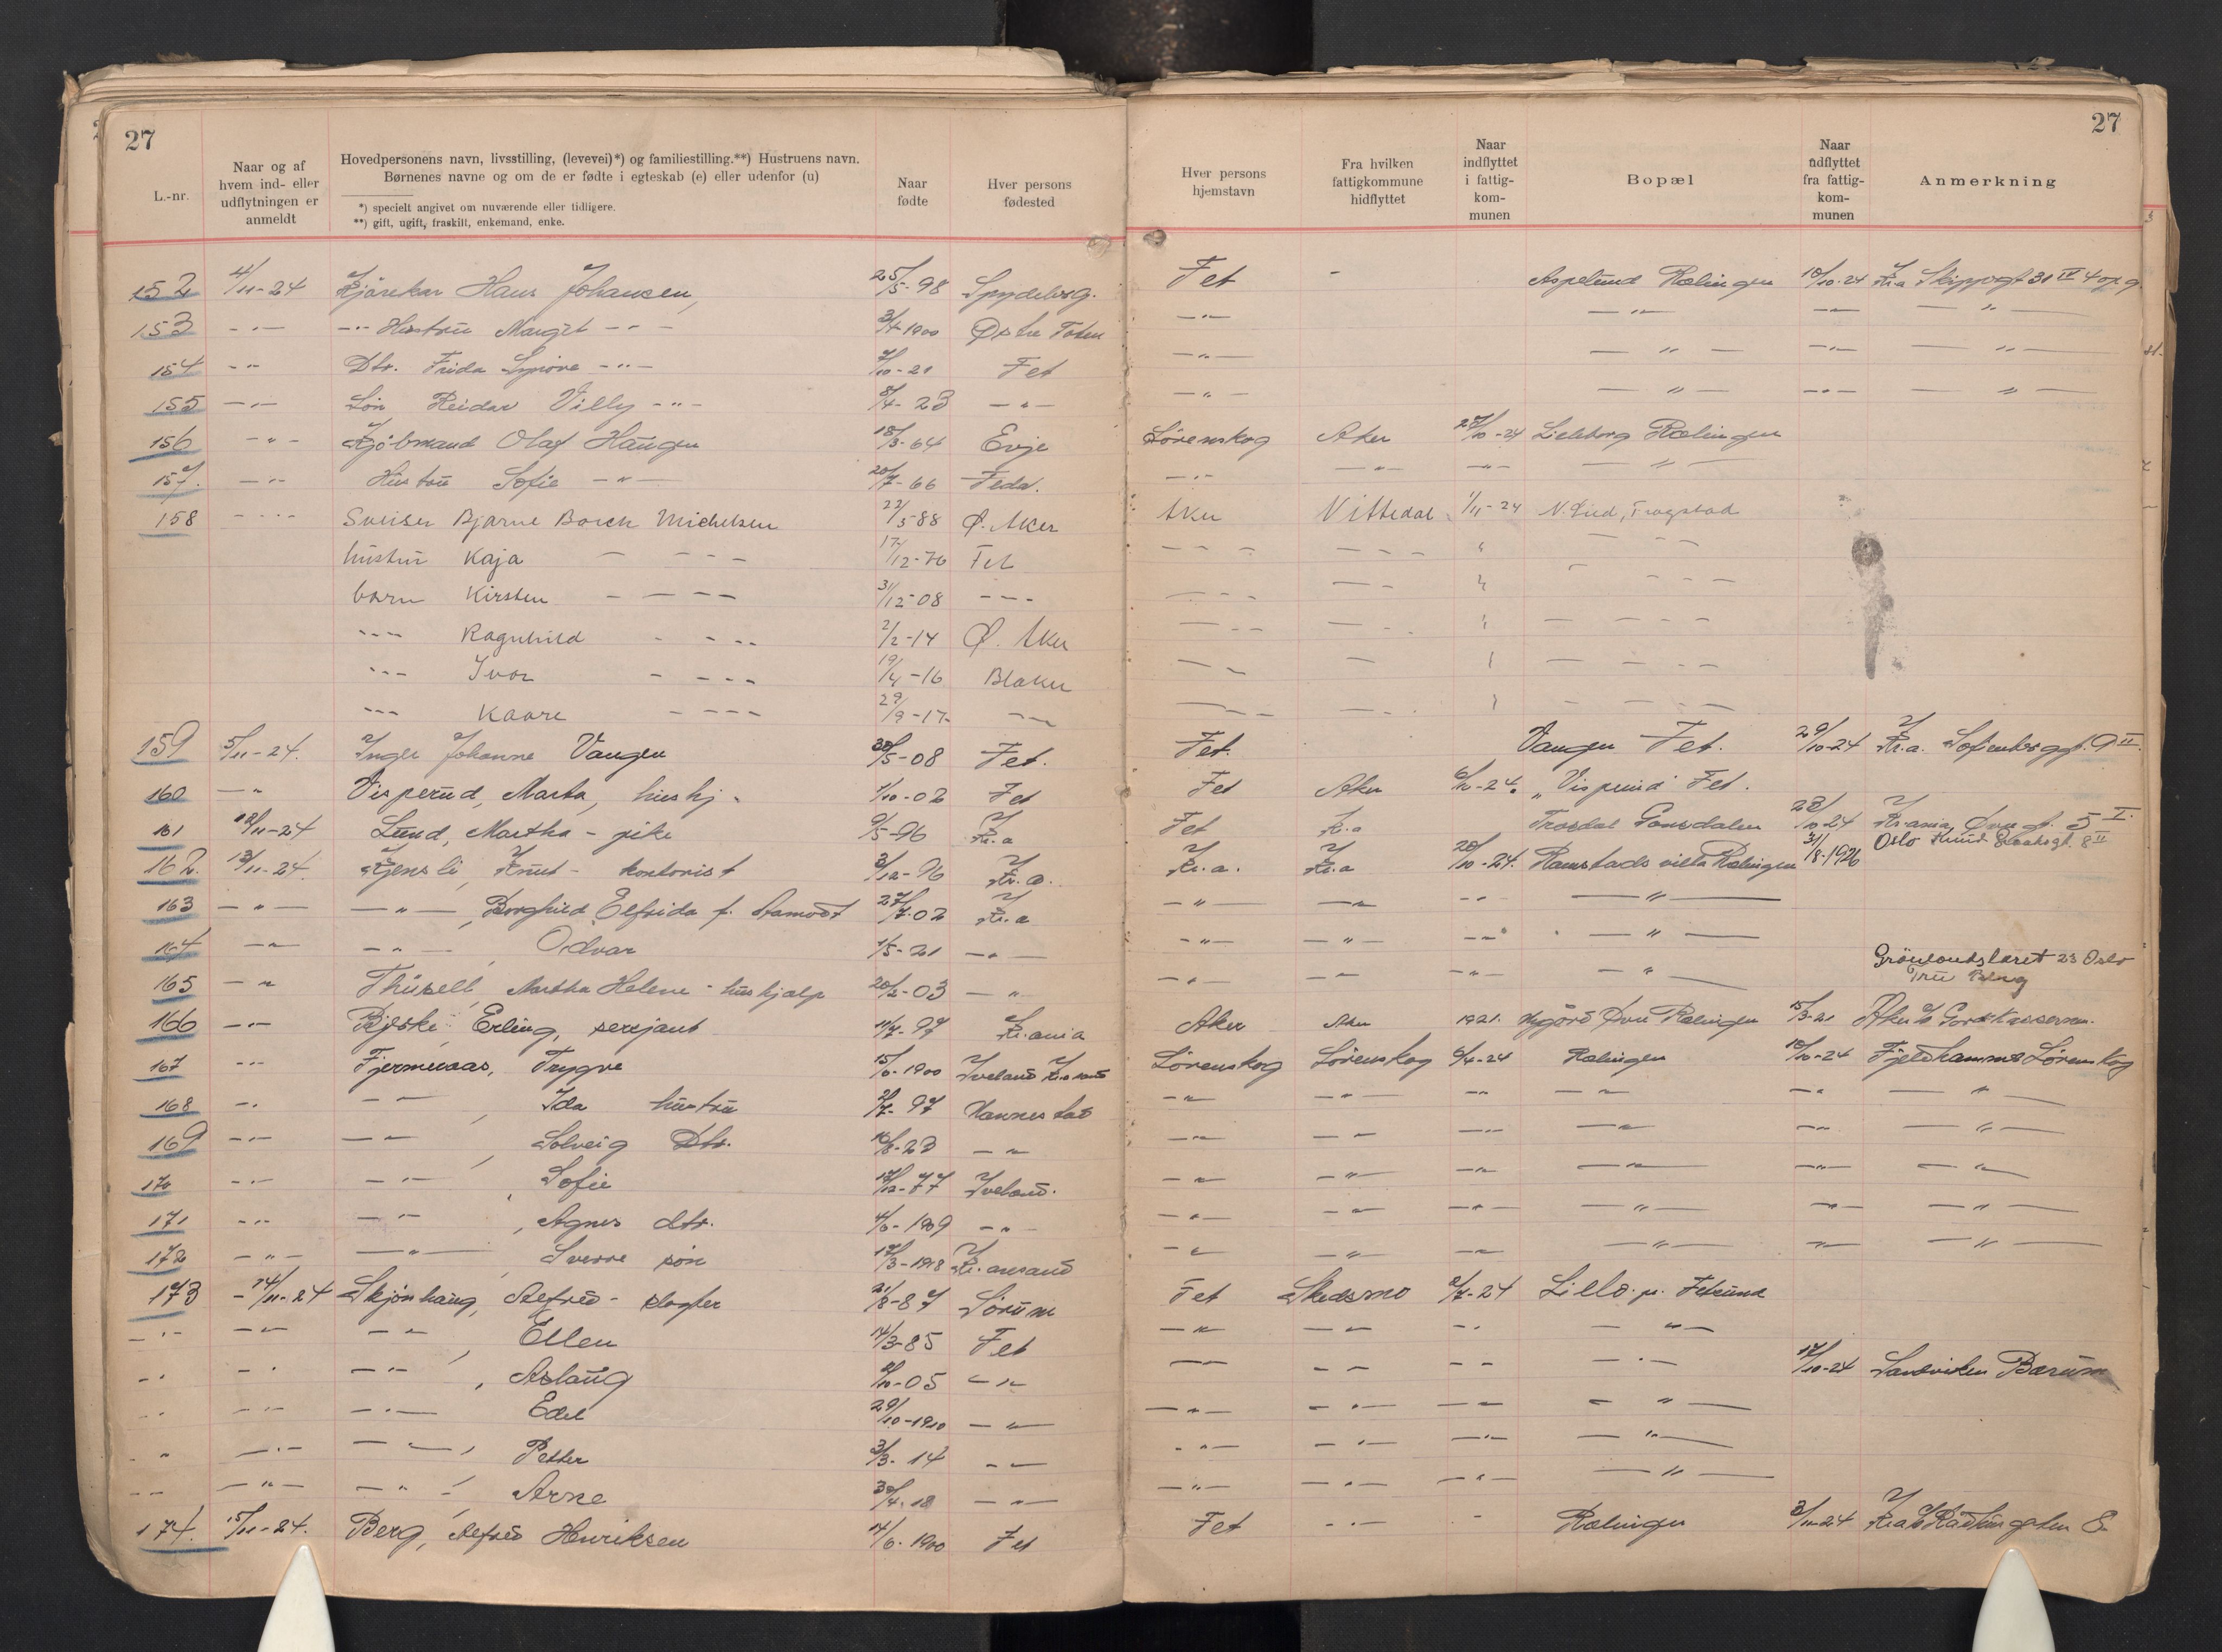 27
27
L.-nr.
Naar og af hvem ind- eller udflytningen er anmeldt
Hovedpersonens navn, livsstilling, (levevei)*) og familiestilling.**) Hustruens navn.
Børnenes navne og om de er fødte i egteskab (e) eller udenfor (u)
*) specielt angivet om nuværende eller tidligere.
**) gift, ugift, fraskilt, enkemand, enke.
Naar fødte
Hver persons fødested
Hver persons hjemstavn
Fra hvilken fattigkommune hidflyttet
Naar indflyttet i fattig-kom-munen
Bopæl
Naar udflyttet fra fattig-kom-munen
Anmerkning
152 4/11-24 Hans Johansen, 25/5-98 Spydeberg. Fet - Aspelund Rælingen 10/10-24 Kr.a
153 -"- -"- Hustru Margit -"- 1900 Østre Toten -"- -"- -"- -"-
154 -"- Dtr. Frida -"- 7/10-21 Fet -"- -"- -"- -"-
155 -"- Søn Reidar Villy -"- 8/4-23 -"- -"- -"- -"- -"-
156 -"- Kjøbmand Olaf Haugen 18/3-64 Evje Lørenskog Aker 27/10-24 Rælingen
157. -"- Hustru Sofie -"- 20/7-66 Feda. -"- -"- -"- -"-
158 -"- Sveiser Bjarne Borch Michelsen 22/5 88 Ø. Aker Aker Nittedal 1/11-24 Fragstad
hustru Kaja - - - 17/12-76 Fet - - - - - - " - - -
barn Kirsten - - - 31/12-08 - - - - - - - - " - - -
- - - Ragnhild - - - 2/2-14 Ø. Aker - - - - - " - - -
- - - Ivar - - - 19/4-16 Blaker - - - " - - -
- - - Kaare - - - 29/9-17 - - - - - - - " - - -
159 5/11-24. Inger Johanne Vangen 30/5-08 Fet. Fet. Vangen Fet. 29/10-24 Kr.a. Sofienberggt. 9 II
160 -"- Visperud, Marta, hushj. 1/10-02 Fet Fet Aker 6/10-24. "Visperud" Fet.
161 12/11-24 Lund, Martha - pike 9/5-96 Kr.a Fet Kr.a Gansdalen 28/10 24 Kr.ania 5 I.
162. 13/11-24. Knut - kontorist 3/12-96 Kr.a. Kr.a. Kr.a 20/10-24. Ramstads villa Rælingen 31/8-1926 Oslo Knud Graahsgt. 8 II
163 -"- -"-, Borghild Elfrida f. Aamodt 27/7-02 Kr.a -"- -"- -"- -"-
164 -"- -"-, Odvar 1/5-21 -"- -"- -"- -"- -"-
165 -"- Martha Helene - hushjælp 20/2-03 -"- -"- -"- -"- -"- Grønlandsleret 23 Oslo
Fru Berg
166 -"- Erling, sersjant 11/7-97 Kr.ania Aker Aker 1921. Rælingen 15/3-21 Aker
167 -"- Fjermeraas, Trygve 15/6-1900 Iveland Lørenskog Lørenskog 6/4-24 Rælingen 10/10-24 Fjeldhammer Lørenskog
168 -"- -"-, Ida hustru 7-97 -"- -"- -"- -"- -"- -"-
169 -"- -"-, Solveig Dtr. 16/8-23 -"- -"- -"- -"- -"- -"- -"-
170 -"- -"-, Sofie 12/12-77 Iveland. -"- -"- -"- -"- -"- -"-
171 -"- -"-, Agnes dtr. 4/6-1909 -"- -"- -"- -"- -"- -"- -"-
172 -"- -"-, Sverre søn 17/3-1918 Kr.ansand -"- -"- -"- -"- -"- -"-
173 -14/11-24 Skjønhaug, Alfred - slagter 21/8-87 Sørum Fet Skedsmo 2/7-24 Lillo. p. Fetsund
-"- -"- -"-, Ellen 14/3-85 Fet -"- -"- -"- -"-
-"- -"- -"-, Aslaug 2/10-05 -"- -"- -"- -"- -"- 17/10-24 Sandviken Bærum
-"- -"- -"- Edel 29/10-1910 -"- -"- -"- -"- -"-
-"- -"- -"-, Petter 3/3-14 -"- -"- -"- -"- -"-
-"- -"- -"-, Arne 30/4-18 -"- -"- -"- -"- -"-
174. 15/11-24. Berg, Alfred Henriksen 14/6-1900 Fet Fet -"- - Rælingen 3/11-24 Kr.a